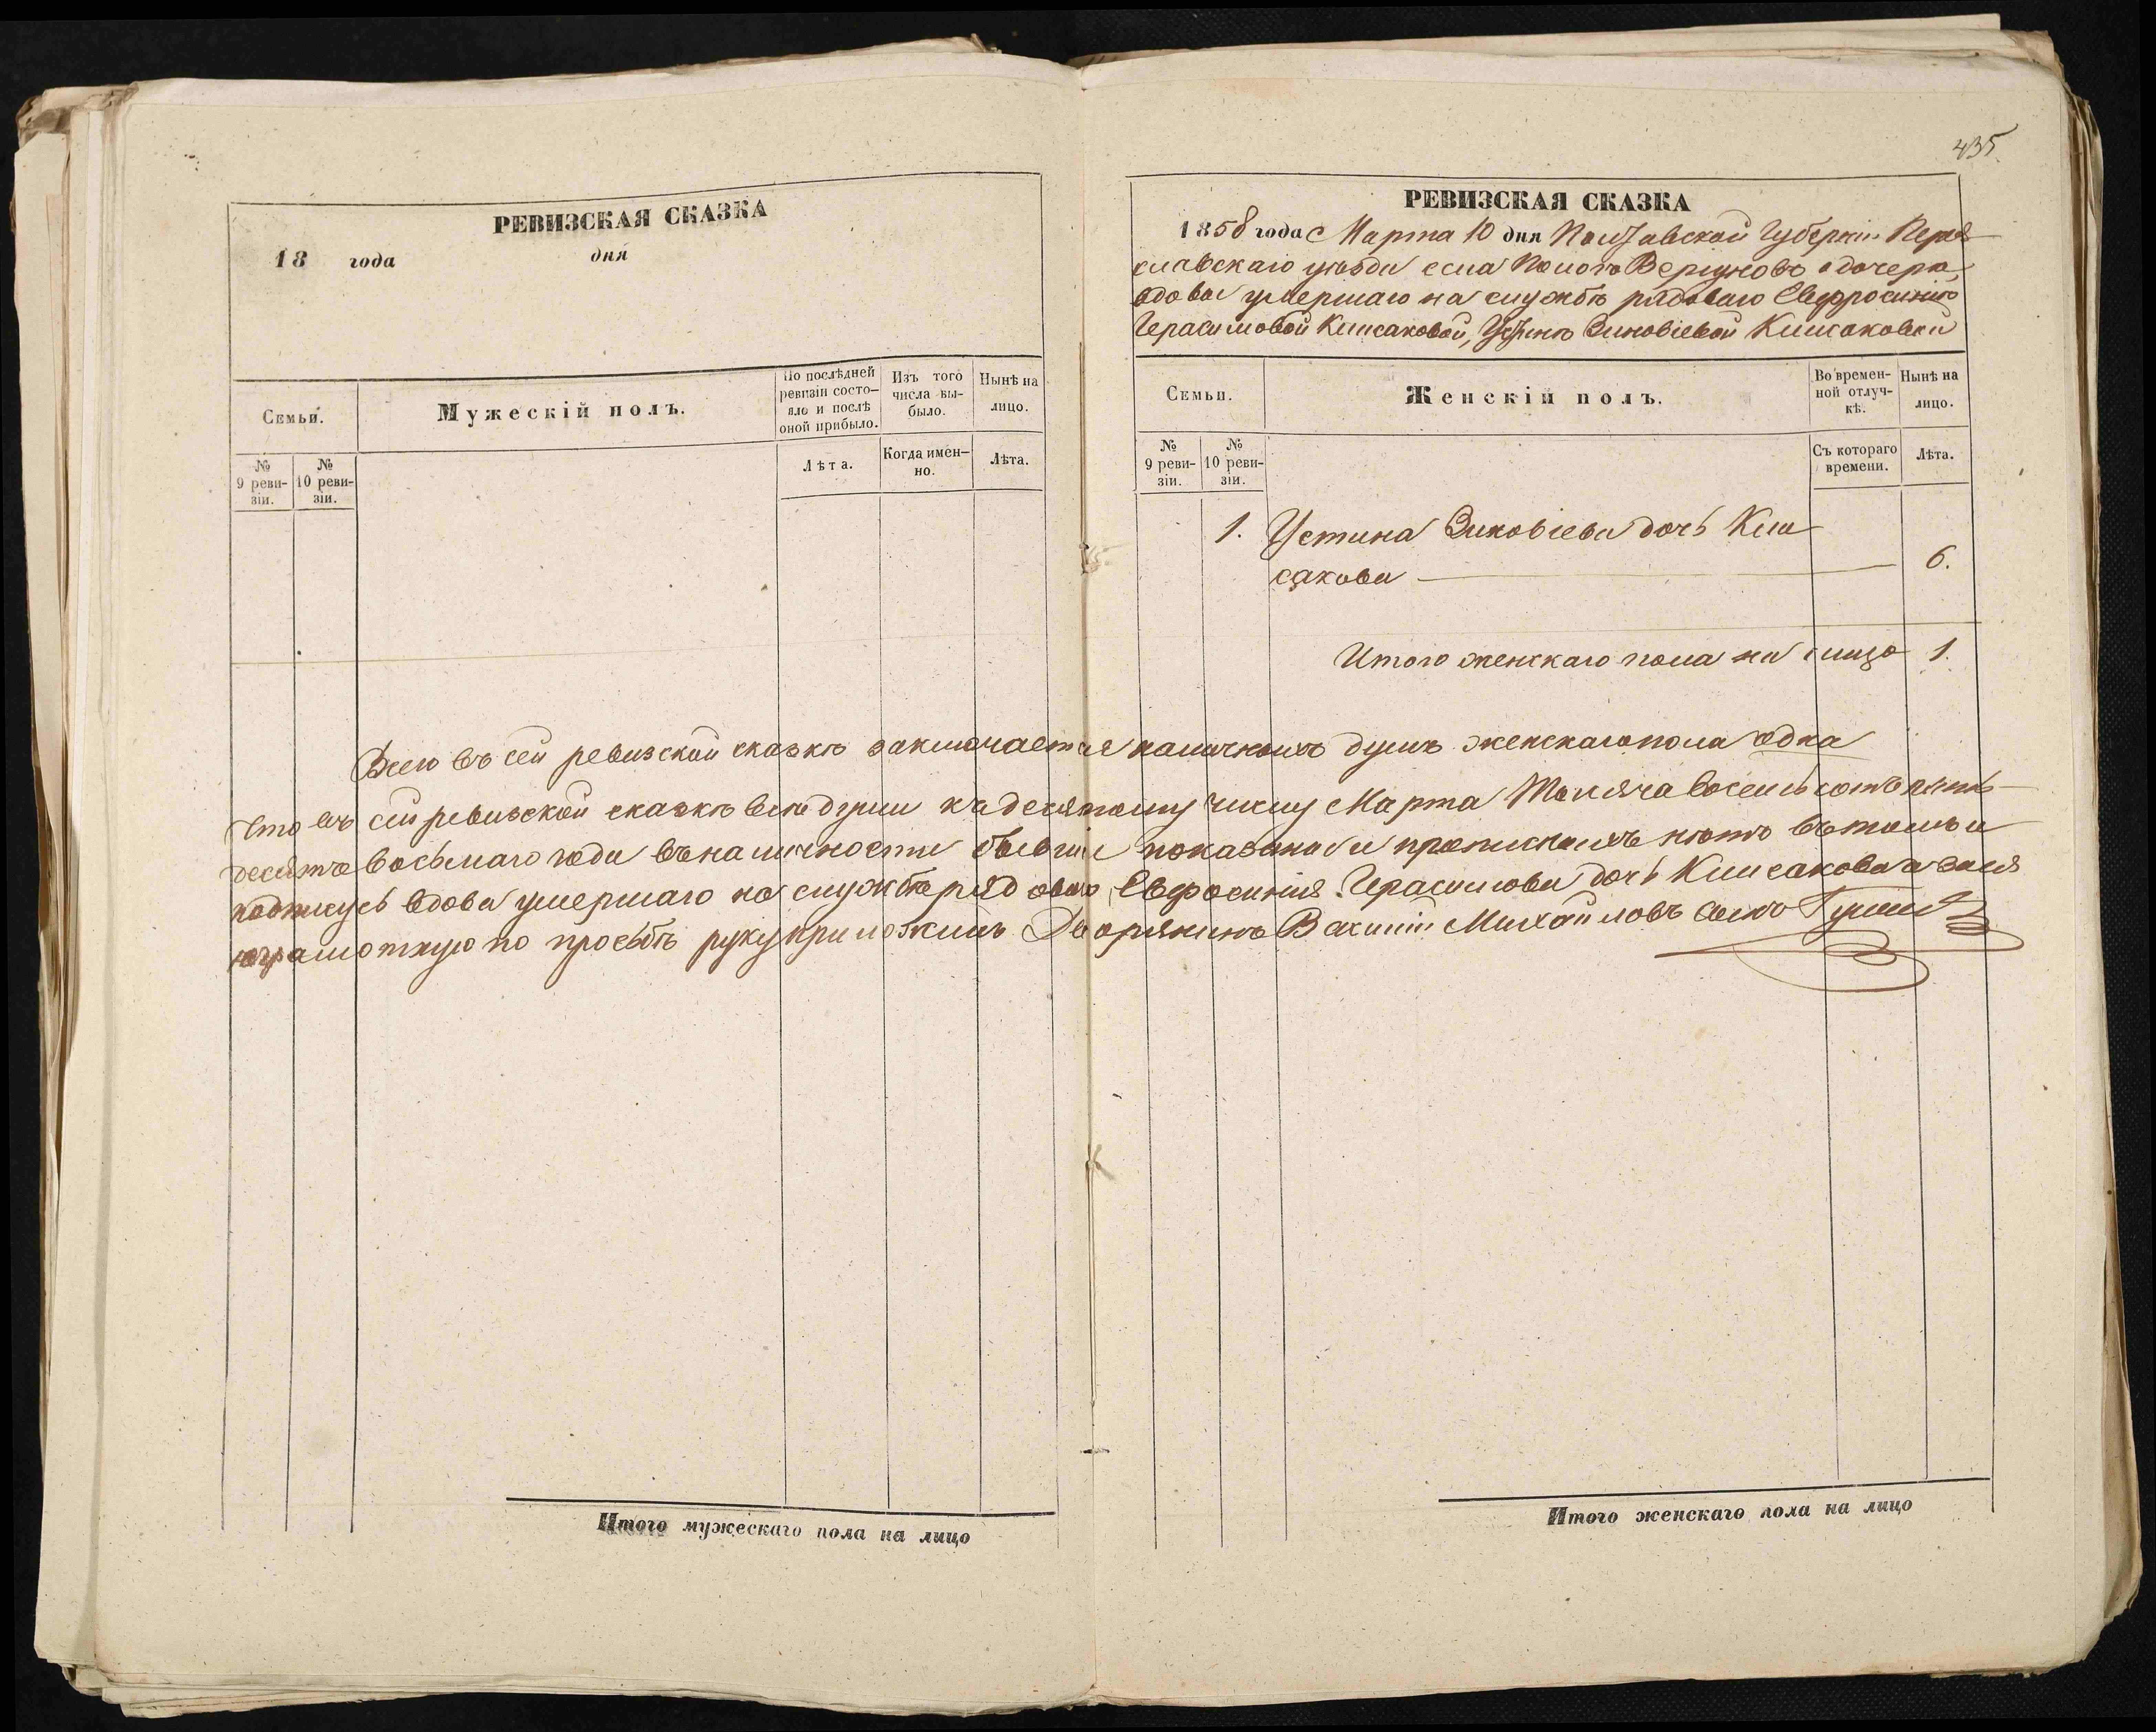 435.
РЕВИЗСКАЯ СКАЗКА
18 года дня
Семьи.
Мужескій полъ.
По послѣдней ревизіи состояло и послѣ оной прибыло.
Изъ того числа выбыло.
Нынѣ на лицо.
№ 9 ревизіи.
№ 10 ревизіи.
Лѣта.
Когда именно.
Лѣта.
РЕВИЗСКАЯ СКАЗКА
1858 года Марта 10 дня Полтавской Губерніи Перея
славскаго уѣзда села Вергуновъ о дочерѣ,
вдовы умершаго на службѣ рядоваго Евфросиніи
Герасимовой Кисаковой, Устинѣ Зиновіевой Кисаковой
Семьи.
Женскій полъ.
Во временной отлучкѣ.
Нынѣ на лицо.
№ 9 ревизіи.
№ 10 ревизіи.
Съ котораго времени.
Лѣта.
1. Устина Зиновіева дочь Ки
сакова 6.
Итого женскаго пола на лицо 1.
Всего въ сей ревизской сказкѣ заключается наличныхъ душъ женскаго пола одна
Что въ сей ревизской сказкѣ всѣ души къ десятому числу Марта Тысяча восемь сотъ пять
десятъ восьмаго года въ наличности бывшіе показаны и прописныхъ нѣтъ въ томъ и
подписусь вдова умершаго на службѣ рядоваго Евфросинія Герасимова дочь Кисакова а за нея
неграмотную по просьбѣ руку приложилъ Дворянинъ Михайловъ сынъ
Итого мужескаго пола на лицо
Итого женскаго пола на лицо